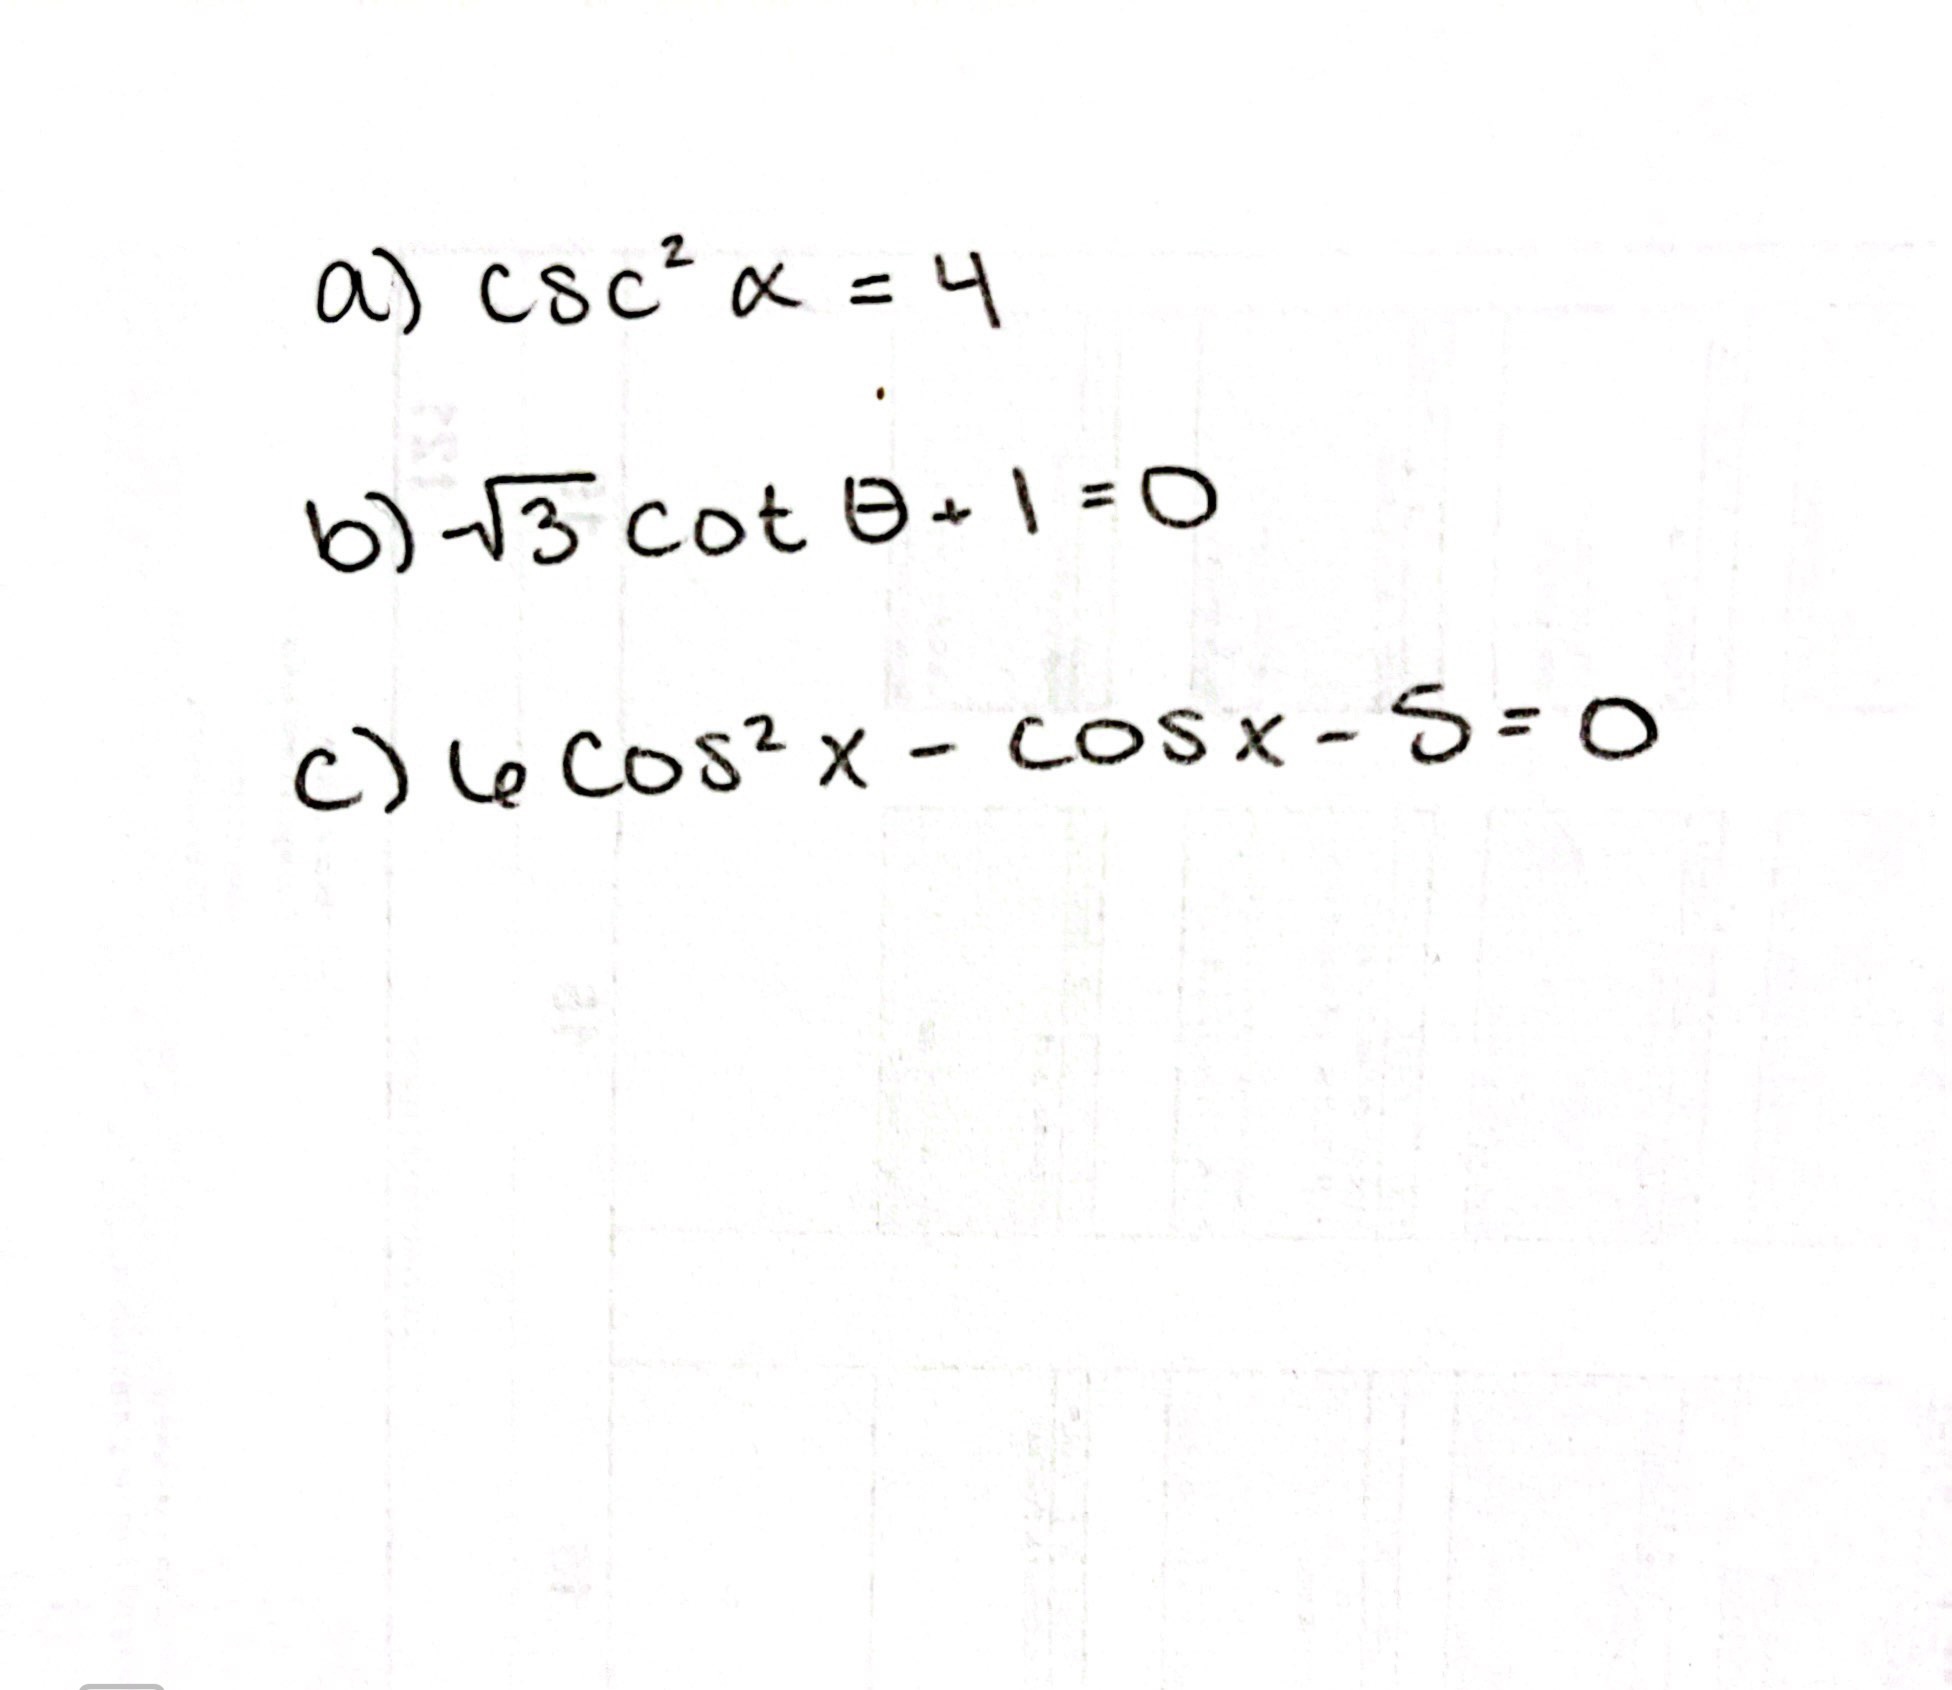 a) csc² α = 4
b) √3 cot θ + 1 = 0
c) 6 cos² x - cos x - 5 = 0